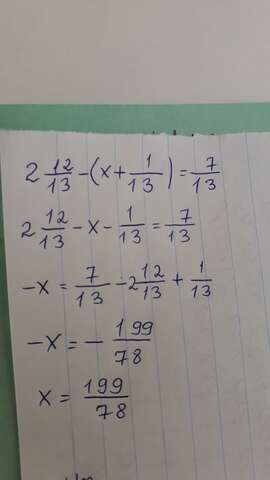 2 12/13 - (x + 1/13) = 7/13
2 12/13 - x - 1/13 = 7/13
-x = 7/13 - 2 12/13 + 1/13
-x = - 199/78
x = 199/78